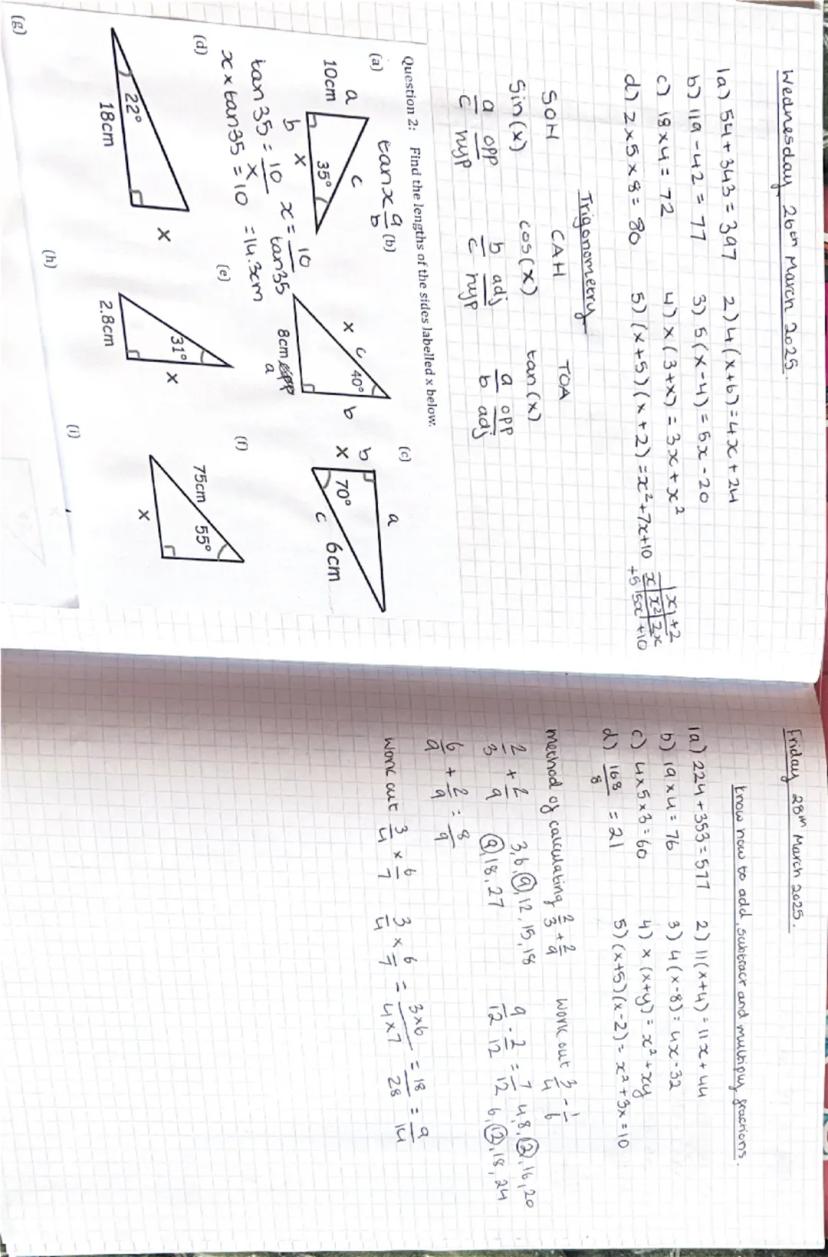 Wednesday 26th March 2025.
1a) 54 + 343 = 397 2) 4(x+6) = 4x + 24
b) 119 - 42 = 77 3) 5(x-4) = 5x - 20
c) 18 x 4 = 72 4) x(3+x) = 3x + x²
d) 2 x 5 x 8 = 80 5) (x+5)(x+2) = x² + 7x + 10
x +2
x x² 2x
+5 5x +10
Trigonometry
SOH CAH TOA
Sin(x) cos(x) tan(x)
a/c opp/hyp b/c adj/hyp a/b opp/adj
Question 2: Find the lengths of the sides labelled x below.
(a) tan x a/b (b) (c)
a 10cm c 35° b x
x c 40° b 8cm a
b x 70° a c 6cm
tan 35 = 10/x x = 10/tan35
x x tan35 = 10 = 14.3cm
(d) (e) (f)
22° 18cm x
31° 2.8cm x
75cm 55° x
(g) (h) (i)
Friday 28th March 2025.
know how to add, subtract and multiply fractions.
1a) 224 + 353 = 577 2) 11(x+4) = 11x + 44
b) 19 x 4 = 76 3) 4(x-8) = 4x - 32
c) 4 x 5 x 3 = 60 4) x(x+y) = x² + xy
d) 168/8 = 21 5) (x+5)(x-2) = x² + 3x = 10
method of calculating 2/3 + 2/9 work out 3/4 - 1/6
2/3 + 2/9 3, 6, 9, 12, 15, 18 9/12 - 2/12 = 7/12 4, 8, 12, 16, 20
9, 18, 27 6, 12, 18, 24
6/9 + 2/9 = 8/9
work out 3/4 x 6/7 3/4 x 6/7 = 3x6/4x7 = 18/28 = 9/14